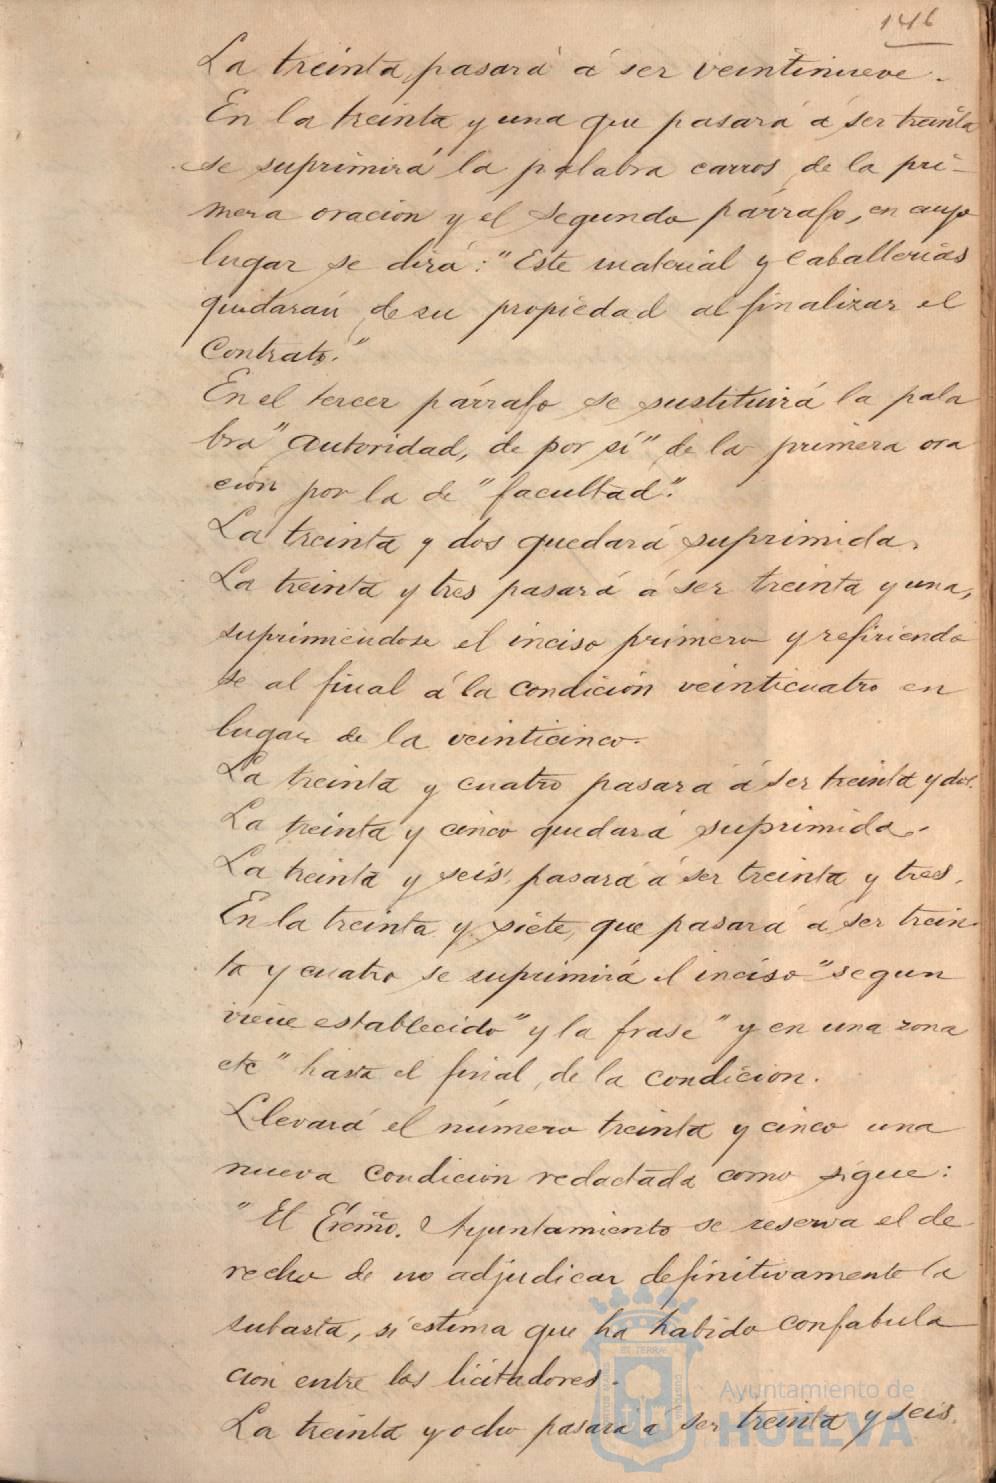 146
La treinta, pasará á ser veintinueve.
En la treinta y una que pasará á ser treinta
se suprimirá la palabra carros de la pri-
mera oracion y el segundo párrafo, en cuyo
lugar se dirá: "Este material y caballerias
quedarán de su propiedad al finalizar el
contrato."
En el tercer párrafo se sustituirá la pala
bra "autoridad, de por sí" de la primera ora
ción por la de "facultad".
La treinta y dos quedará suprimida.
La treinta y tres pasará á ser treinta y una,
suprimiendose el inciso primero y refiriendo
se al final á la condición veinticuatro en
lugar de la veinticinco.
La treinta y cuatro pasará á ser treinta y dos.
La treinta y cinco quedará suprimida.
La treinta y seis, pasará á ser treinta y tres.
En la treinta y siete, que pasará á ser trein-
ta y cuatro se suprimirá el inciso "segun
viene establecido" y la frase "y en una zona
etc" hasta el final de la condicion.
Llevará el número treinta y cinco una
nueva condicion redactada como sigue:
"El Excmo. Ayuntamiento se reserva el de
recho de no adjudicar definitivamente la
subasta, si estima que ha habido confabula
cion entre los licitadores.
La treinta y ocho pasará á ser treinta y seis.
Ayuntamiento de
HUELVA